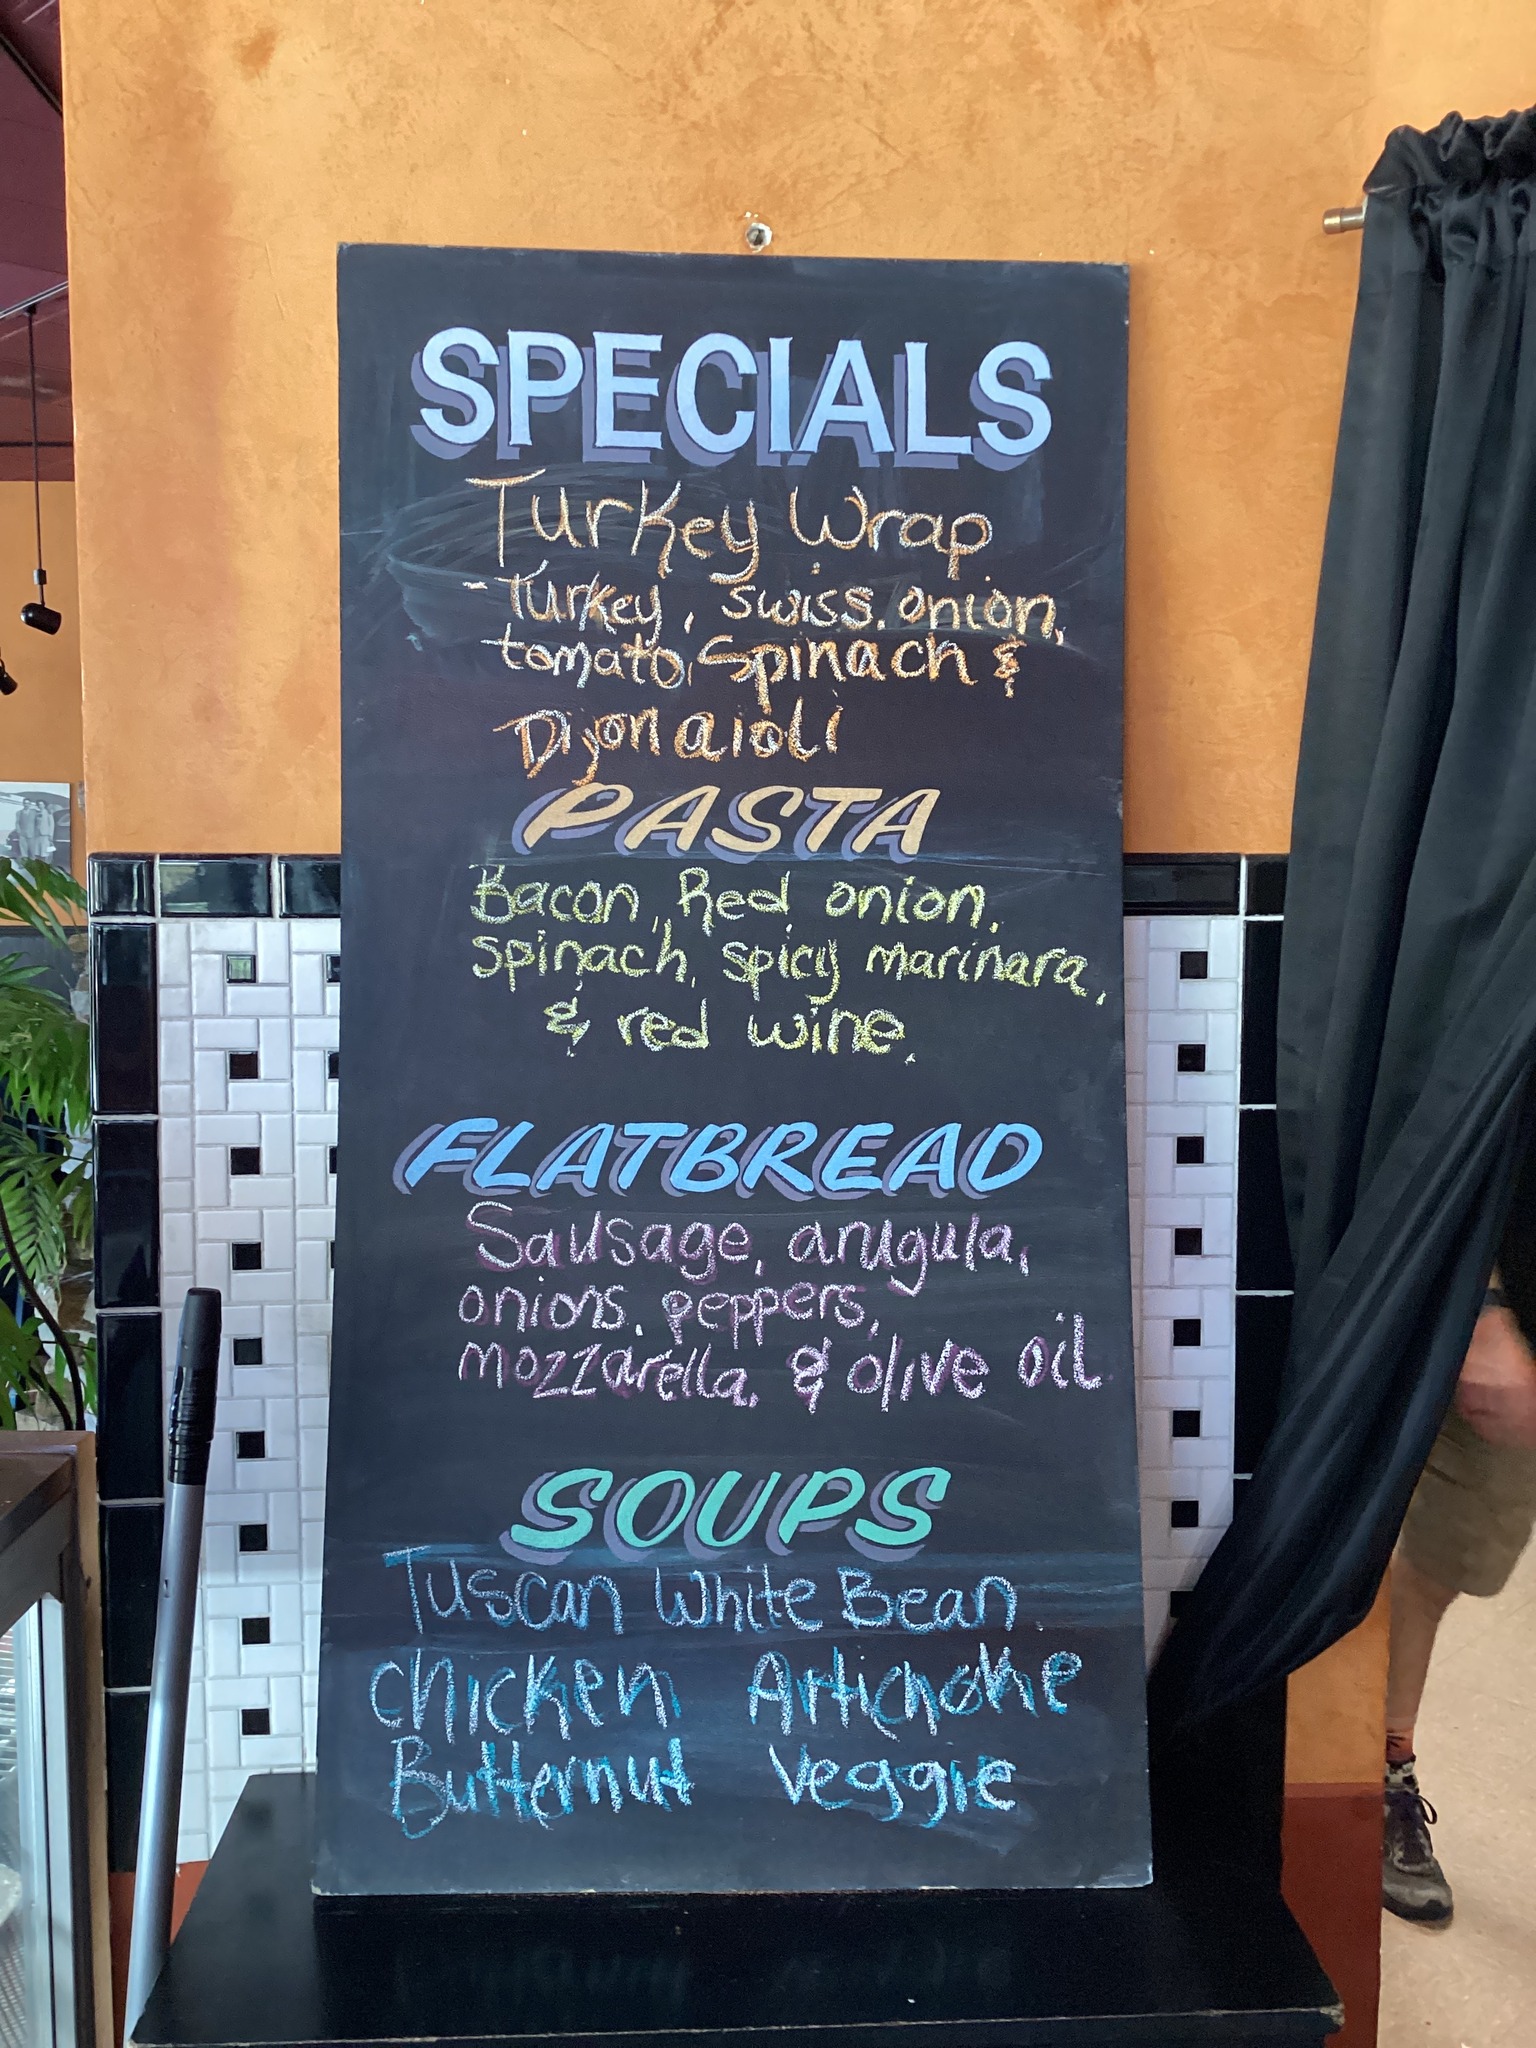 SPECIALS
Turkey Wrap
- Turkey, swiss, onion,
tomato, Spinach &
Dijon aioli
PASTA
Bacon, Red onion,
spinach, spicy marinara,
& red wine.
FLATBREAD
Sausage, arugula,
onions, peppers,
mozzarella, & olive oil
SOUPS
Tuscan White Bean
Chicken Artichoke
Butternut Veggie